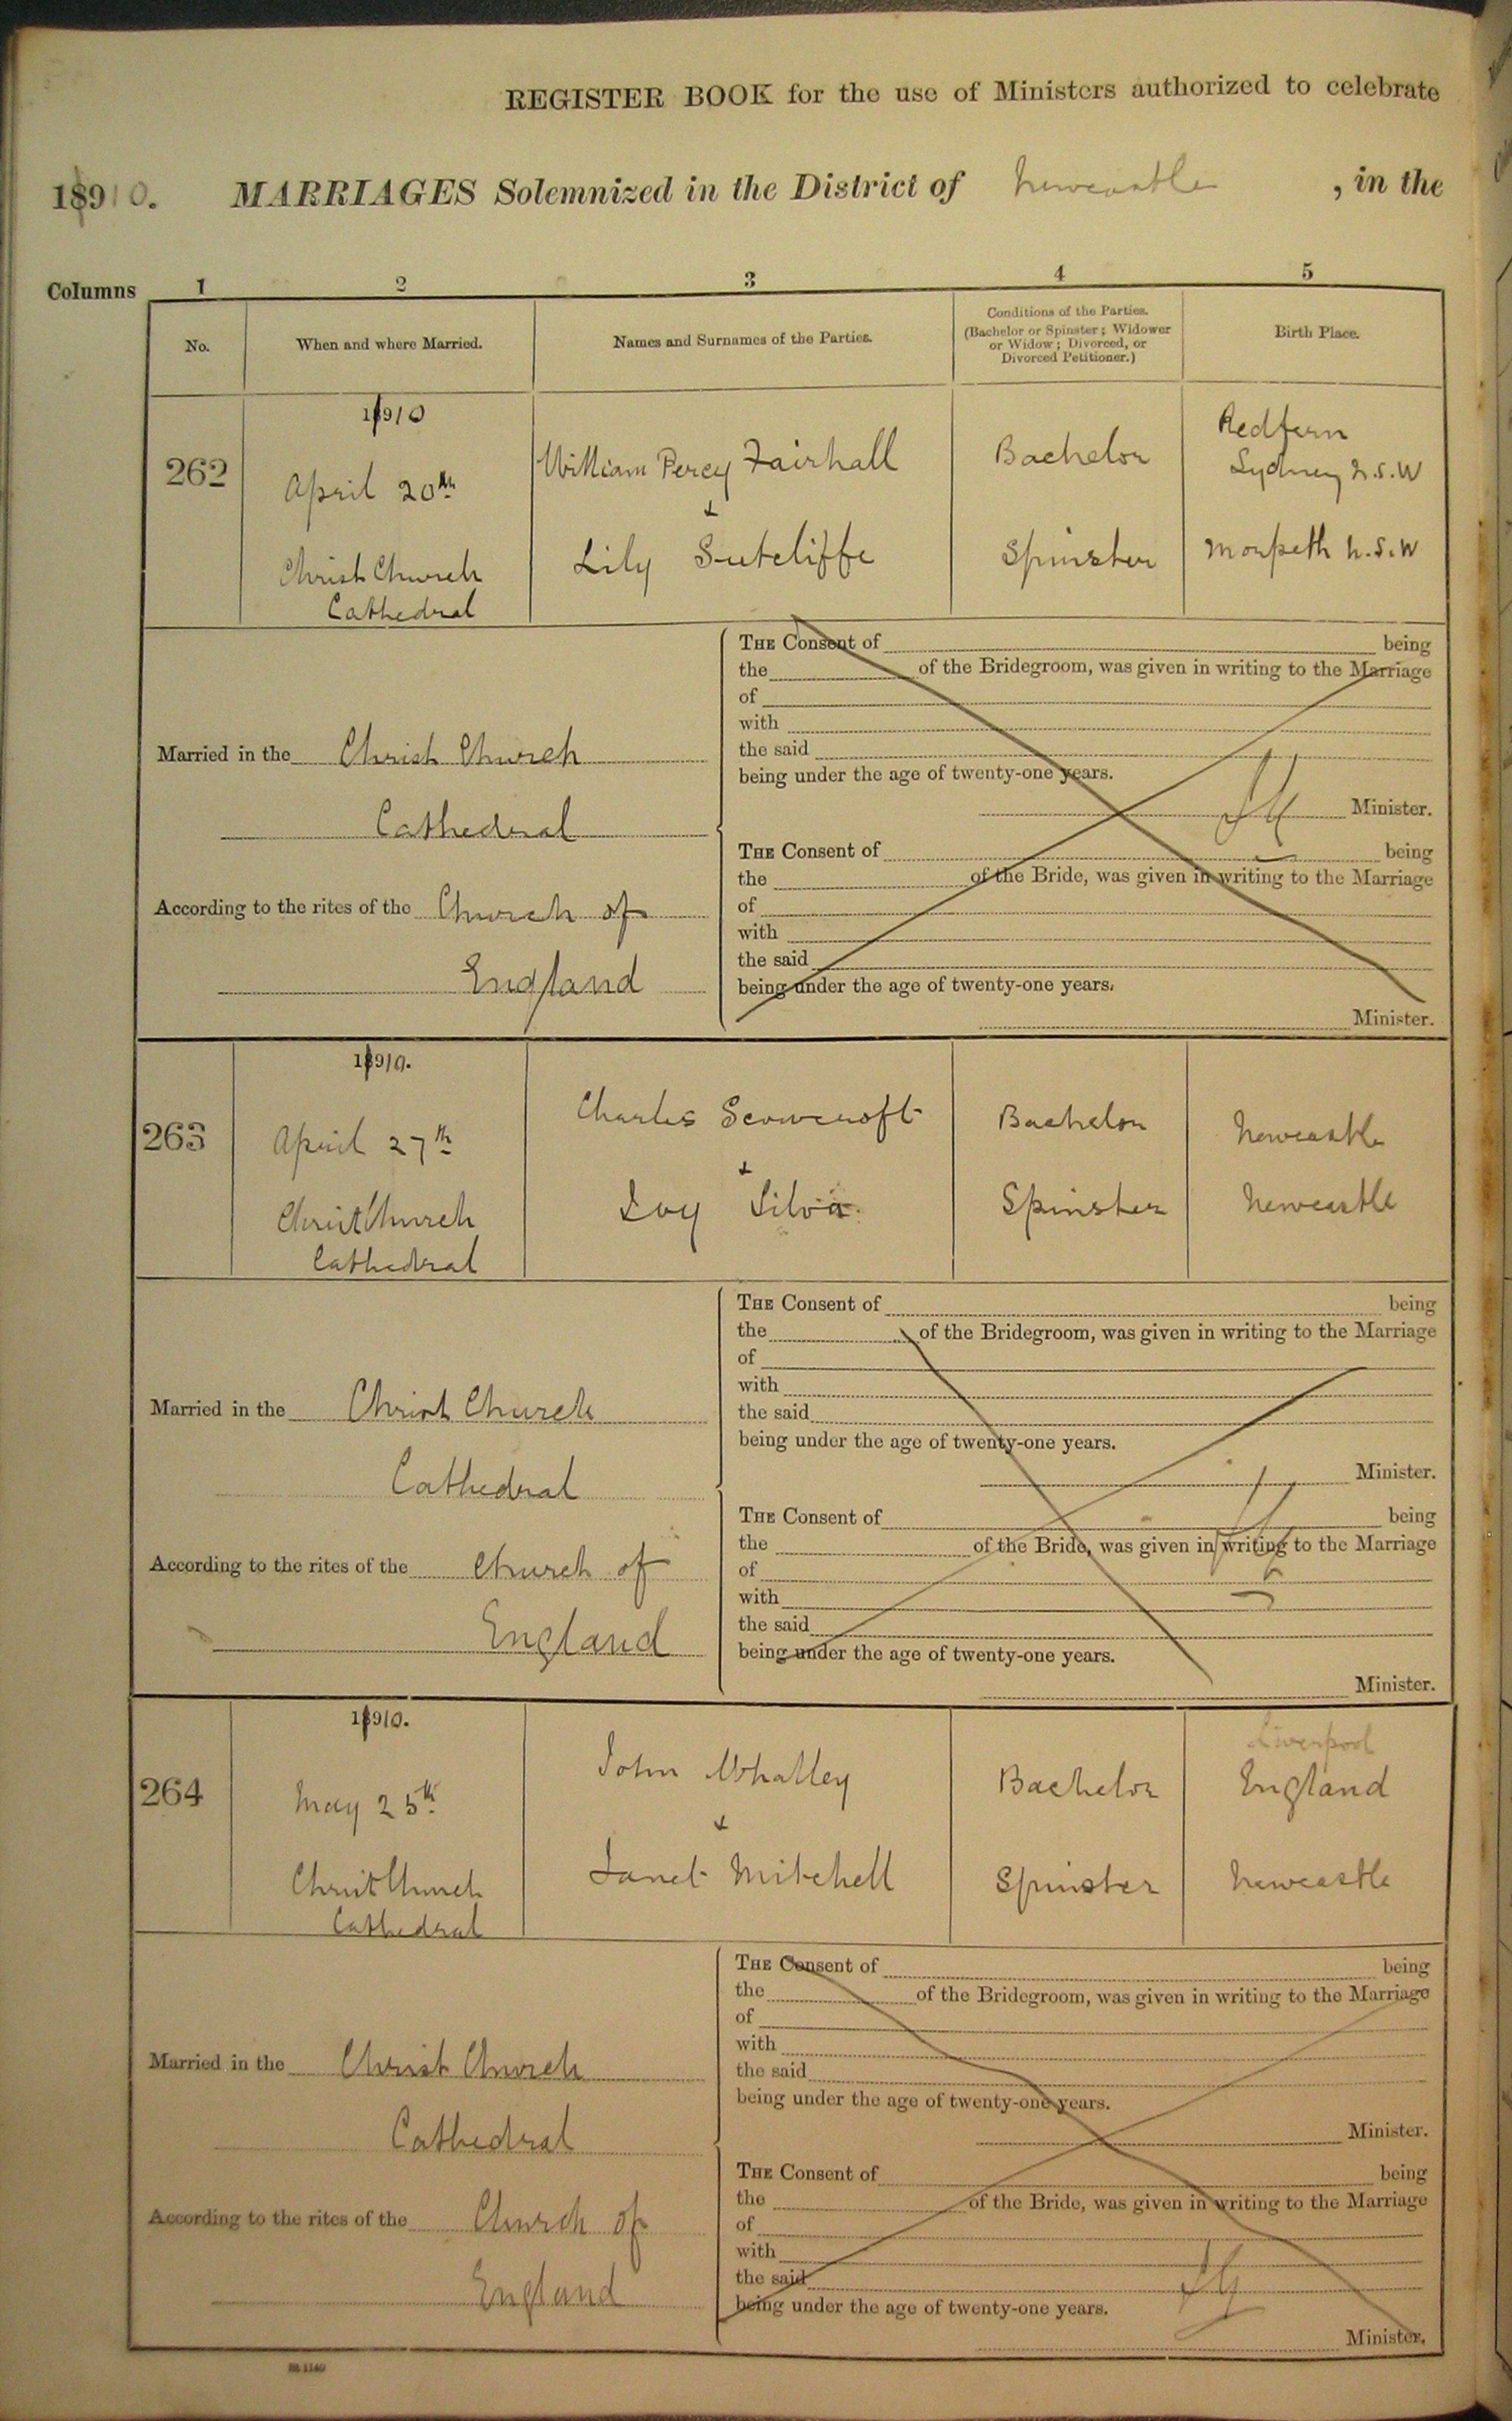 REGISTER BOOK for the use of Ministers authorized to celebrate
1910. MARRIAGES Solemnized in the District of Newcastle, in the
Columns 1 2 3 4 5
No. When and where Married. Names and Surnames of the Parties. Conditions of the Parties. (Bachelor or Spinster; Widower or Widow; Divorced, or Divorced Petitioner.) Birth Place.
1910
262
April 20th
Christ Church
Cathedral
William Percy Fairhall
+
Lily Sutcliffe
Bachelor
Spinster
Redfern
Sydney N.S.W
Morpeth N.S.W
Married in the Christ Church
Cathedral
According to the rites of the Church of
England
THE Consent of being
the of the Bridegroom, was given in writing to the Marriage
of
with
the said
being under the age of twenty-one years.
Minister.
THE Consent of being
the of the Bride, was given in writing to the Marriage
of
with
the said
being under the age of twenty-one years.
Minister.
1910.
263
April 27th
Christ Church
Cathedral
Charles Scowcroft
+
Ivy Silva
Bachelor
Spinster
Newcastle
Newcastle
Married in the Christ Church
Cathedral
According to the rites of the Church of
England
THE Consent of being
the of the Bridegroom, was given in writing to the Marriage
of
with
the said
being under the age of twenty-one years.
Minister.
THE Consent of being
the of the Bride, was given in writing to the Marriage
of
with
the said
being under the age of twenty-one years.
Minister.
1910.
264
May 25th
Christ Church
Cathedral
John Whalley
+
Janet Mitchell
Bachelor
Spinster
Liverpool
England
Newcastle
Married in the Christ Church
Cathedral
According to the rites of the Church of
England
THE Consent of being
the of the Bridegroom, was given in writing to the Marriage
of
with
the said
being under the age of twenty-one years.
Minister.
THE Consent of being
the of the Bride, was given in writing to the Marriage
of
with
the said
being under the age of twenty-one years.
Minister.